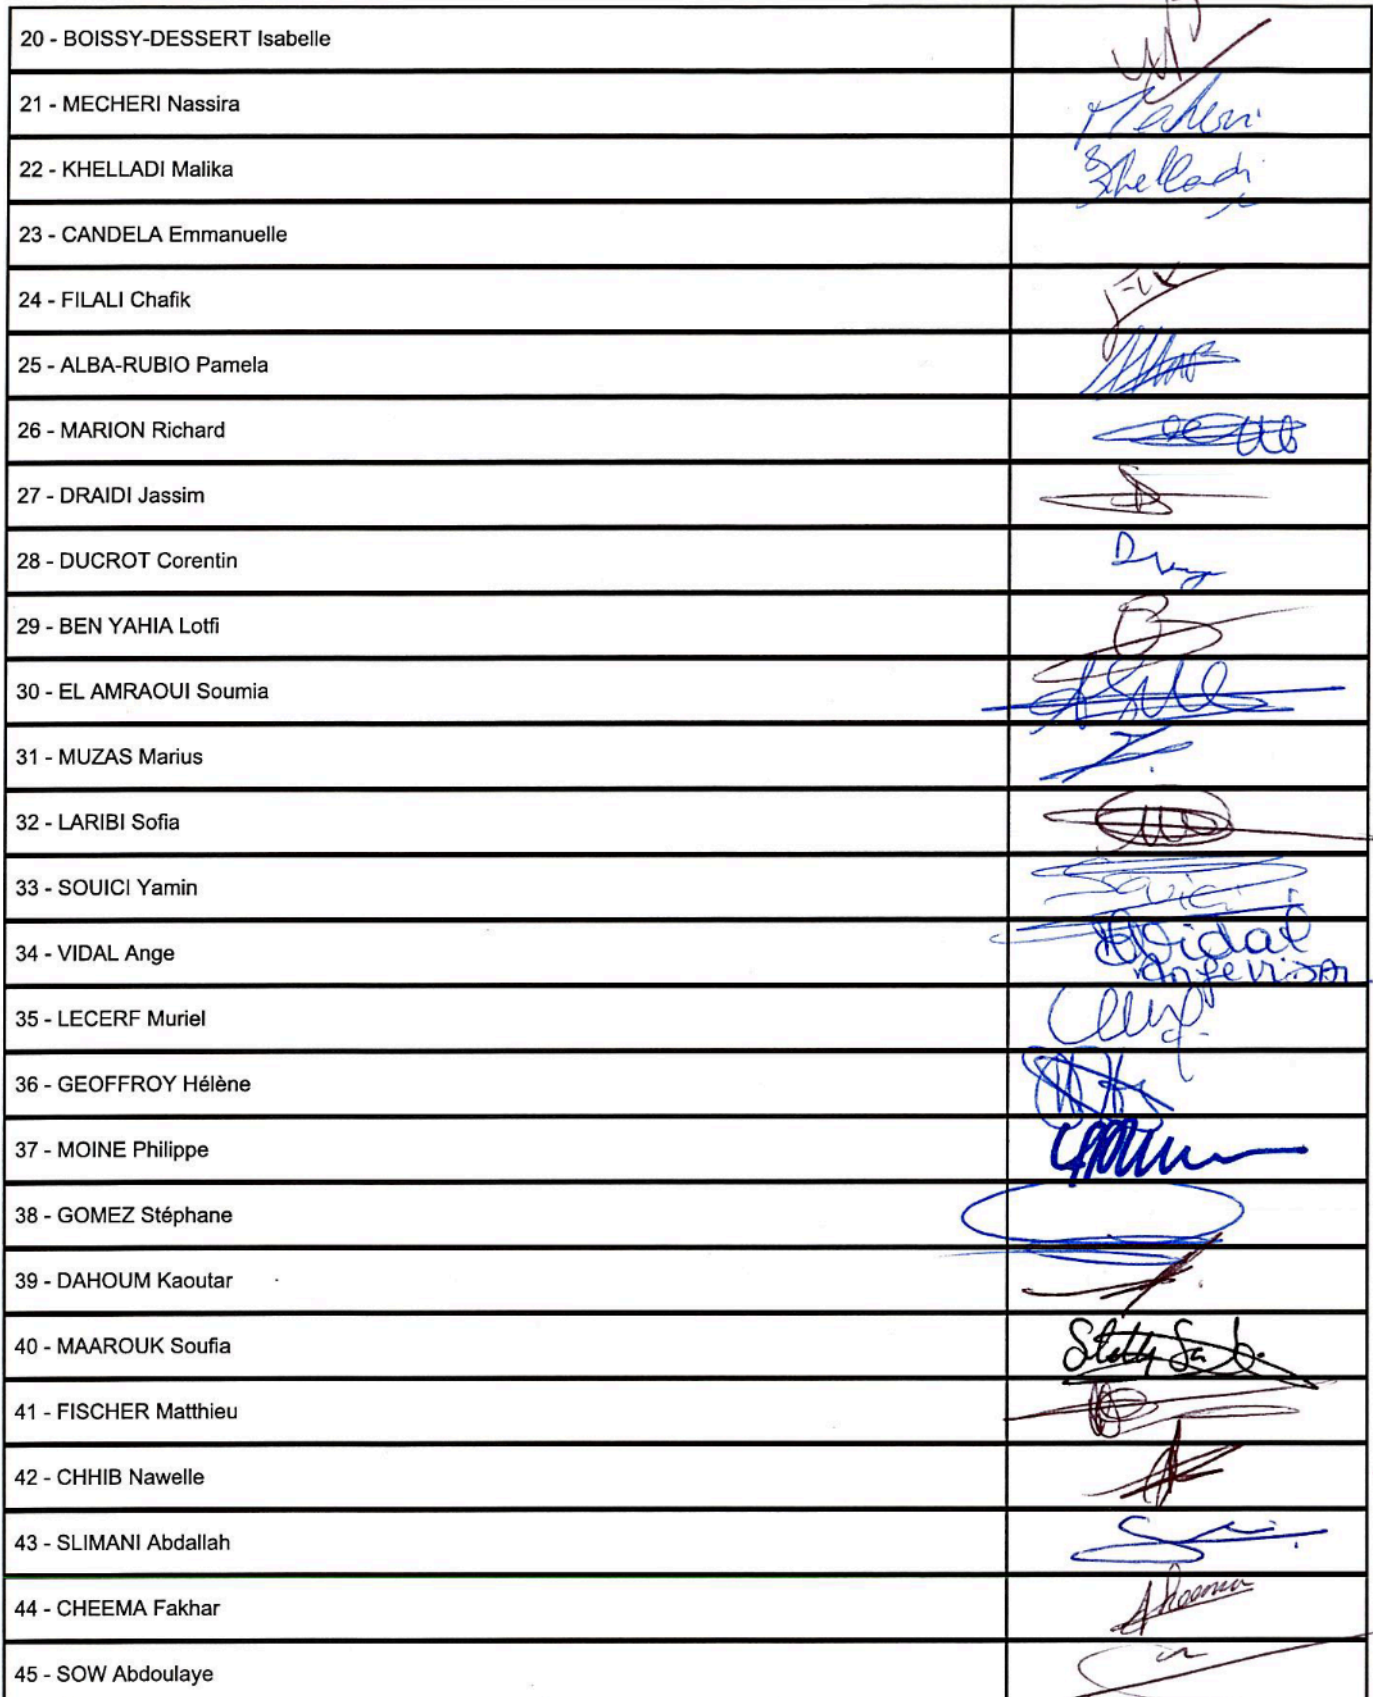 20 - BOISSY-DESSERT Isabelle
21 - MECHERI Nassira
22 - KHELLADI Malika
Khelladi
23 - CANDELA Emmanuelle
24 - FILALI Chafik
25 - ALBA-RUBIO Pamela
26 - MARION Richard
27 - DRAIDI Jassim
28 - DUCROT Corentin
29 - BEN YAHIA Lotfi
30 - EL AMRAOUI Soumia
31 - MUZAS Marius
32 - LARIBI Sofia
33 - SOUICI Yamin
Souici
34 - VIDAL Ange
Vidal
35 - LECERF Muriel
36 - GEOFFROY Hélène
37 - MOINE Philippe
38 - GOMEZ Stéphane
39 - DAHOUM Kaoutar
40 - MAAROUK Soufia
41 - FISCHER Matthieu
42 - CHHIB Nawelle
43 - SLIMANI Abdallah
44 - CHEEMA Fakhar
45 - SOW Abdoulaye